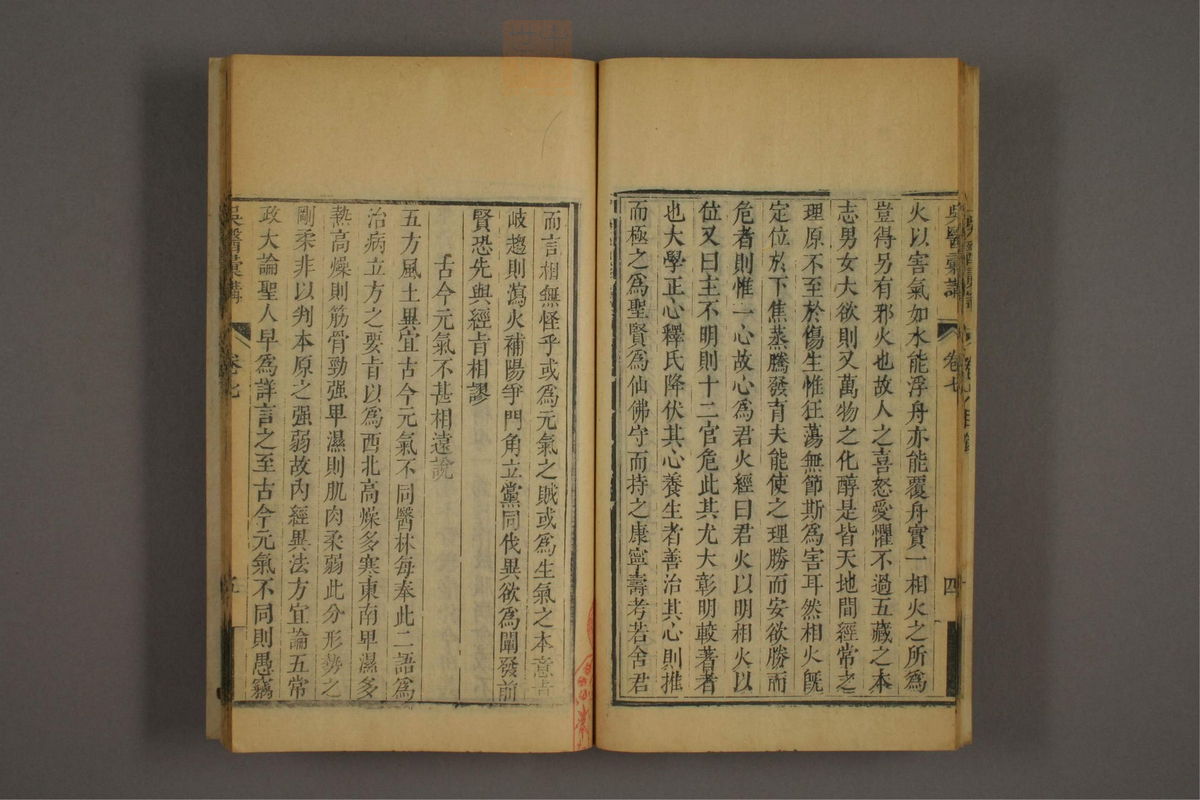 吳醫彙講
卷七
四
火以害氣如水能浮舟亦能覆舟實一相火之所爲
豈得另有邪火也故人之喜怒愛懼不過五藏之本
志男女大欲則又萬物之化醇是皆天地間經常之
理原不至於傷生惟狂蕩無節斯爲害耳然相火旣
定位於下焦蒸騰發育夫能使之理勝而安欲勝而
危者則惟一心故心爲君火經曰君火以明相火以
位又曰主不明則十二官危此其尤大彰明較著者
也大學正心釋氏降伏其心養生者善治其心則推
而極之爲聖賢爲仙佛守而持之康寧壽考若舍君
而言相無怪乎或爲元氣之賊或爲生氣之本意
岐趨則瀉火補陽爭門角立黨同伐異欲爲闡發前
賢恐先與經旨相謬
古今元氣不甚相遠說
五方風土異宜古今元氣不同醫林每奉此二語爲
治病立方之要旨以爲西北高燥多寒東南卑濕多
熱高燥則筋骨勁强卑濕則肌肉柔弱此分形勢之
剛柔非以判本原之强弱故內經異法方宜論五常
政大論聖人早爲詳言之至古今元氣不同則愚竊
吳醫彙講
卷七
五